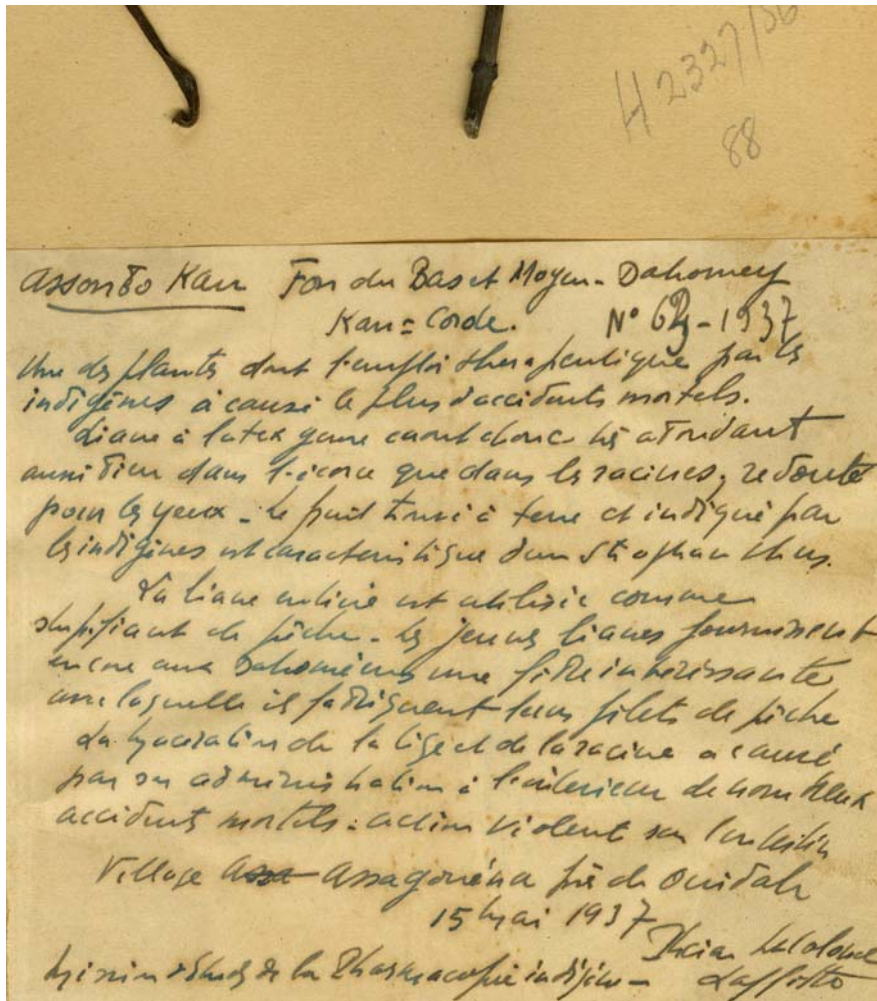 H 2327/36
88
Assonto Kan Fon du Bas et Moyen-Dahomey
Kan = Corde. N° -1937
Une des plantes dont l'emploi therapeutique par les
indigènes a causé le plus d'accidents mortels.
Liane à latex caoutchouc très abondant
aussi bien dans l'écorce que dans les racines, redouté
pour les yeux - Le fruit trouvé à terre et indiqué par
les indigènes est caracteristique d'un Strophanthus.
La liane entière est utilisée comme
stupéfiant de pêche - les jeunes lianes fournissent
encore aux Dahoméens une fibre interessante
avec laquelle ils fabriquent leurs filets de pêche
La maceration de la tige et de la racine a causé
par son administration à l'interieur de nombreux
accidents mortels : action violente sur
Village Assagouéna près de Ouidah
15 Mai 1937
Mission d'études de la Pharmacopée indigène -